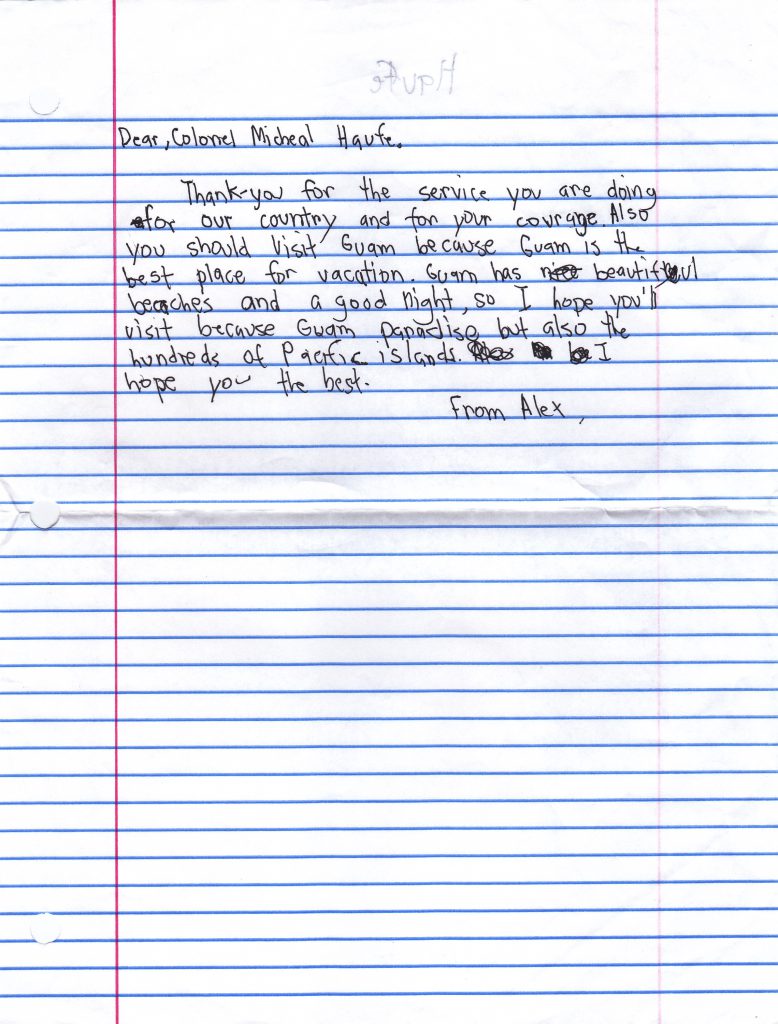 Haufe
Dear, Colonel Micheal Haufe.
Thank-you for the service you are doing
for our country and for your courage. Also
you should visit Guam because Guam is the
best place for vacation. Guam has beautiful
beaches and a good night, so I hope you'll
visit because Guam paradise but also the
hundreds of Pacific islands. I
hope you the best.
From Alex,